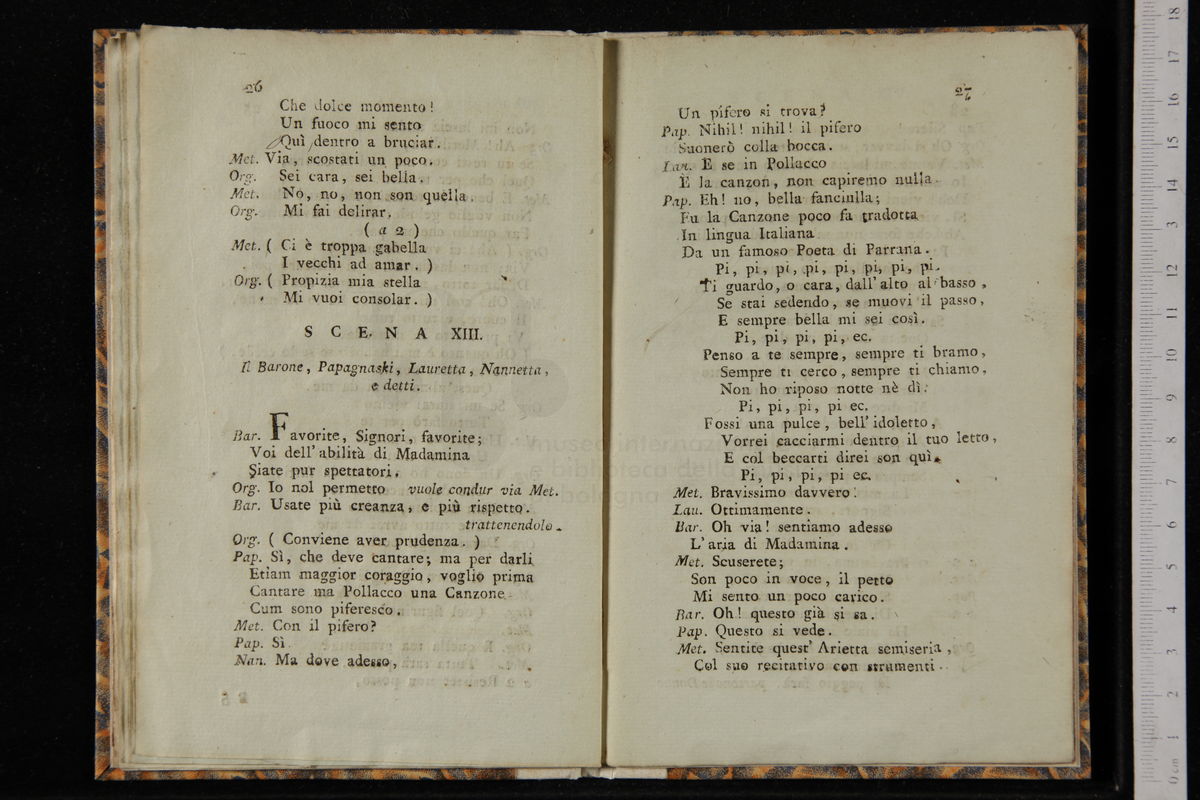 26
Che dolce momento!
Un fuoco mi sento
Quì dentro a bruciar.
Met. Via, scostati un poco.
Org. Sei cara, sei bella.
Met. No, no, non son quella.
Org. Mi fai delirar.
( a 2 )
Met. ( Ci è troppa gabella
I vecchi ad amar. )
Org. ( Propizia mia stella
Mi vuoi consolar. )
SCENA XIII.
Il Barone, Papagnaski, Lauretta, Nannetta,
e detti.
Bar. Favorite, Signori, favorite;
Voi dell' abilità di Madamina
Siate pur spettatori.
Org. Io nol permetto vuole condur via Met.
Bar. Usate più creanza, e più rispetto.
trattenendolo.
Org. ( Conviene aver prudenza. )
Pap. Sì, che deve cantare; ma per darli
Etiam maggior coraggio, voglio prima
Cantare ma Pollacco una Canzone
Cum sono piferesco.
Met. Con il pifero?
Pap. Sì.
Nan. Ma dove adesso,
27
Un pifero si trova?
Pap. Nihil! nihil! il pifero
Suonerò colla bocca.
Lau. E se in Pollacco
E la canzon, non capiremo nulla.
Pap. Eh! no, bella fanciulla;
Fu la Canzone poco fa tradotta
In lingua Italiana
Da un famoso Poeta di Parrana.
Pi, pi, pi, pi, pi, pi, pi, pi.
Ti guardo, o cara, dall' alto al basso,
Se stai sedendo, se muovi il passo,
E sempre bella mi sei così.
Pi, pi, pi, pi, ec.
Penso a te sempre, sempre ti bramo,
Sempre ti cerco, sempre ti chiamo,
Non ho riposo notte nè dì.
Pi, pi, pi, pi ec.
Fossi una pulce, bell' idoletto,
Vorrei cacciarmi dentro il tuo letto,
E col beccarti direi son quì.
Pi, pi, pi, pi ec.
Met. Bravissimo davvero!
Lau. Ottimamente.
Bar. Oh via! sentiamo adesso
L' aria di Madamina.
Met. Scuserete;
Son poco in voce, il petto
Mi sento un poco carico.
Bar. Oh! questo già si sa.
Pap. Questo si vede.
Met. Sentite quest' Arietta semiseria,
Col suo recitativo con strumenti.